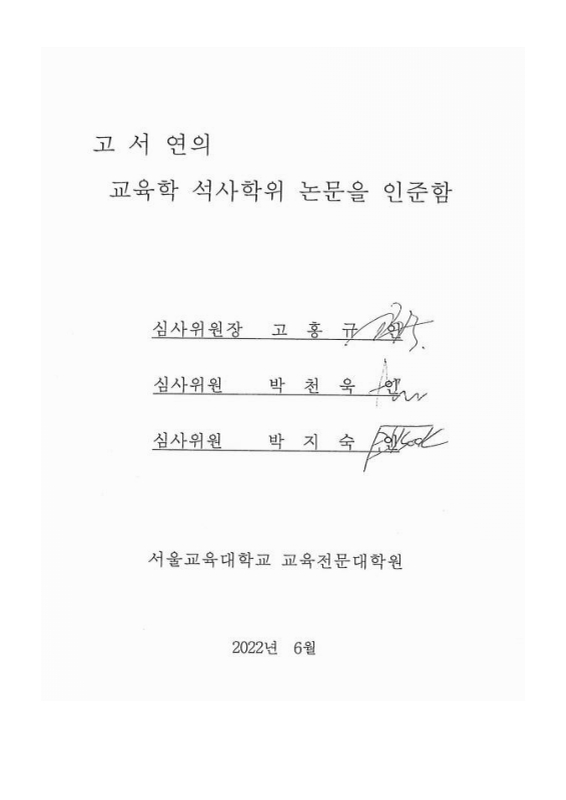 고 서 연의
교육학 석사학위 논문을 인준함
심사위원장 고 홍 규 인
심사위원 박 천 욱 인
심사위원 박 지 숙 인
서울교육대학교 교육전문대학원
2022년 6월